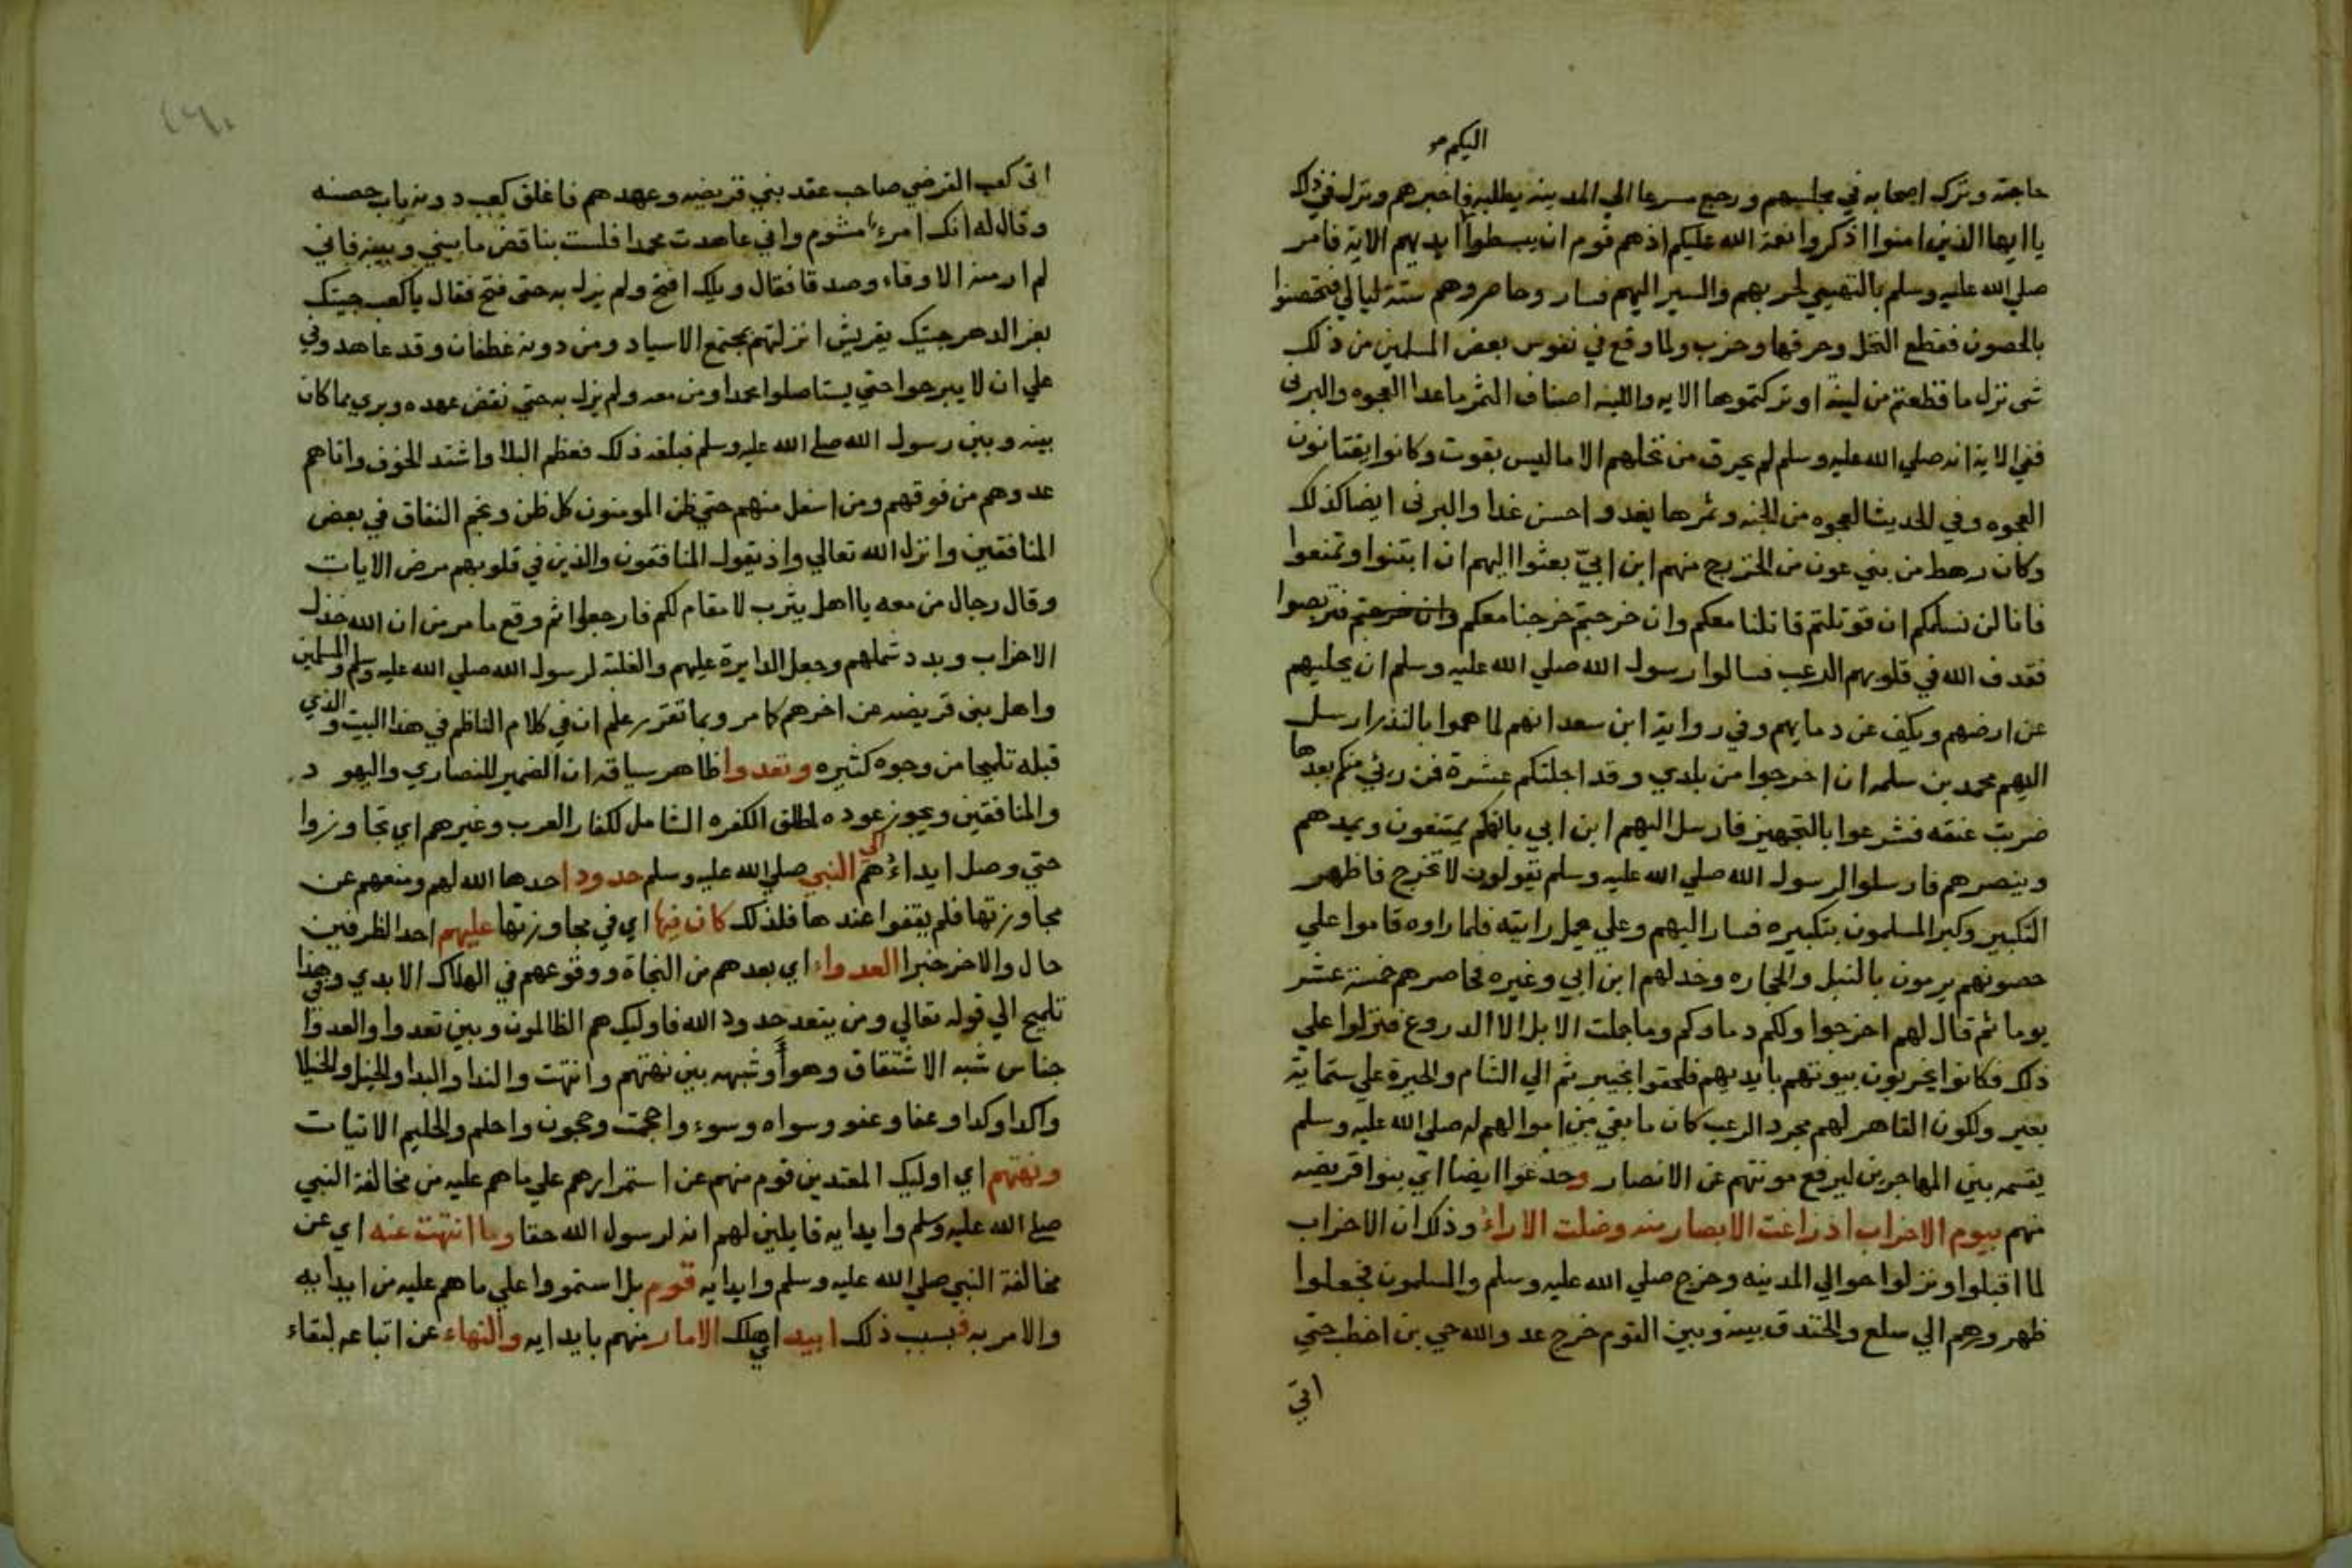 اليكم صو
حاجته وترك اصحابه في مجلسهم ورجع مسرعا الي المدينه يطلبه فاخبرهم ونزل في ذلك
يا ايها الذين امنوا اذكروا نعمة الله عليكم اذهم قوم ان يبسطوا ايديهم الاية فامر
صلي الله عليه وسلم بالتهيي لحربهم والسير اليهم فسار وحاصروهم ستة ليالي فتحصنوا
بالحصون فقطع النخل وحرقها وخرب ولما وقع في نفوس بعض المسلمين من ذلك
شي نزل ما قطعتم من لينة او تركتموها الايه واللينه اصناف الثمر ماعدا العجوه والبرني
ففي الاية انه صلي الله عليه وسلم لم يحرق من نخلهم الا ما ليس بقوت وكانوا يقتاتون
العجوه وفي الحديث العجوه من الجنه وثمرها يغدو احسن غدا والبرني ايضا كذلك
وكان رهط من بني عون من الخزرج منهم ابن ابيّ بعثوا اليهم ان اثبتوا وتمنعوا
فانا لن نسلمكم ان قوتلتم قاتلنا معكم وان خرجتم خرجنا معكم وان خرجتم فتربصوا
فقدف الله في قلوبهم الرعب فسالوا رسول الله صلي الله عليه وسلم ان يجليهم
عن ارضهم ويكف عن دمايهم وفي رواية ابن سعد انهم لما هموا بالغدر ارسل
اليهم محمد بن سلمه ان اخرجوا من بلدي وقد اجلتكم عشرة فمن رئي منكم بعدها
ضربت عنقه فشرعوا بالتجهيز فارسل اليهم ابن ابي بانهم يمتنعون ويمدهم
وينصرهم فارسلوا لرسول الله صلي الله عليه وسلم يقولون لا نخرج فاظهر
التكبير وكبر المسلمون بتكبيره فسار اليهم وعلي يحمل رايته فلما راوه قاموا علي
حصونهم يرمون بالنبل والحجاره وخدلهم ابن ابي وغيره فحاصرهم خمسة عشر
يوما ثم قال لهم اخرجوا ولكم دماوكم وما حملت الابل الا الدروع فنزلوا علي
ذلك فكانوا يخربون بيوتهم بايديهم فلحقوا بخيبر ثم الي الشام والحيرة علي ستماية
بعير ولكون القاهر لهم مجرد الرعب كان ما بقي من اموالهم له صلي الله عليه وسلم
يقسمه بين المهاجرين ليرفع مونتهم عن الانصار وخدعوا ايضا اي بنوا قريضه
منهم بيوم الاحزاب اذ زاغت الابصار منه وضلت الاراء وذلك ان الاحزاب
لما اقبلوا ونزلوا حوالي المدينه وخرج صلي الله عليه وسلم والمسلمون فجعلوا
ظهورهم الي سلع والخندق بينه وبين القوم خرج عدو الله حي بن اخطب حتي
اتي
اتي كعب القرضي صاحب عقد بني قريضه وعهدهم فاغلق كعب دونه باب حصنه
وقال له انك امرء مشوم واني عاهدت محمدا فلست بناقض ما بيني وبينه فاني
لم ار منه الا وفاء وصدقا فقال ويلك افتح ولم يزل به حتى فتح فقال يا كعب جيتك
بعز الدهر جيتك بقريش انزلتهم بمجتمع الاسياد ومن دونه غطفان وقد عاهدوني
علي ان لا يبرحوا حتي يستاصلوا محمدا ومن معه ولم يزل به حتي نقض عهده وبري مما كان
بينه وبين رسول الله صلي الله عليه وسلم فبلغه ذلك فعظم البلا واشتد الخوف واتاهم
عدوهم من فوقهم ومن اسفل منهم حتي ظن المومنون كل ظن ونجم النفاق في بعض
المنافقين وانزل الله تعالي واذ يقول المنافقون والذين في قلوبهم مرض الايات
وقال رجال من معه يا اهل يثرب لا مقام لكم فارجعوا ثم وقع ما مر من ان الله خذل
الاحزاب وبدد شملهم وجعل الدايرة عليهم والغلبة لرسول الله صلي الله عليه وسلم والمسلمين
واهل بني قريضه عن اخرهم كما مر وبما تقرر علم ان في كلام الناظم في هذا البيت والذي
قبله تلميحا من وجوه كثيره وتعدوا ظاهر سياقه ان الضمير للنصاري واليهود
والمنافقين ويجوز عوده لمطلق الكفره الشامل لكفار العرب وغيرهم اي تجاوزوا
حتي وصل ايداءهم الى النبي صلي الله عليه وسلم حدودا حدها الله لهم ومنعهم عن
مجاوزتها فلم يقفوا عندها فلذلك كان فيها اي في مجاوزتها عليهم احد الظرفين
حال والاخر خبرا العدواء اي بعدهم من النجاة ووقوعهم في الهلاك الابدي وفي هذا
تلميح الي قوله تعالي ومن يتعد حدود الله فاوليك هم الظالمون وبين تعدوا والعدوا
جناس شبه الاشتقاق وهو أو شبهه بين نهتهم وانتهت والندا والبدا والخيل والخيلا
واكدا وكدا وعفا وعفو وسواه وسوء واحجمت وحجون واحلم والحليم الاتيات
ونهتهم اي اوليك المعتدين قوم منهم عن استمرارهم علي ماهم عليه من مخالفة النبي
صلي الله عليه وسلم وايدايه قايلين لهم انه لرسول الله حقا وما انتهت عنه اي عن
مخالفة النبي صلي الله عليه وسلم وايدايه قوم بل استمروا علي ماهم عليه من ايدايه
والامر به فبسبب ذلك ابيد اي اهلك الامار منهم بايدايه والنهاء عن اتباعه لبقاء